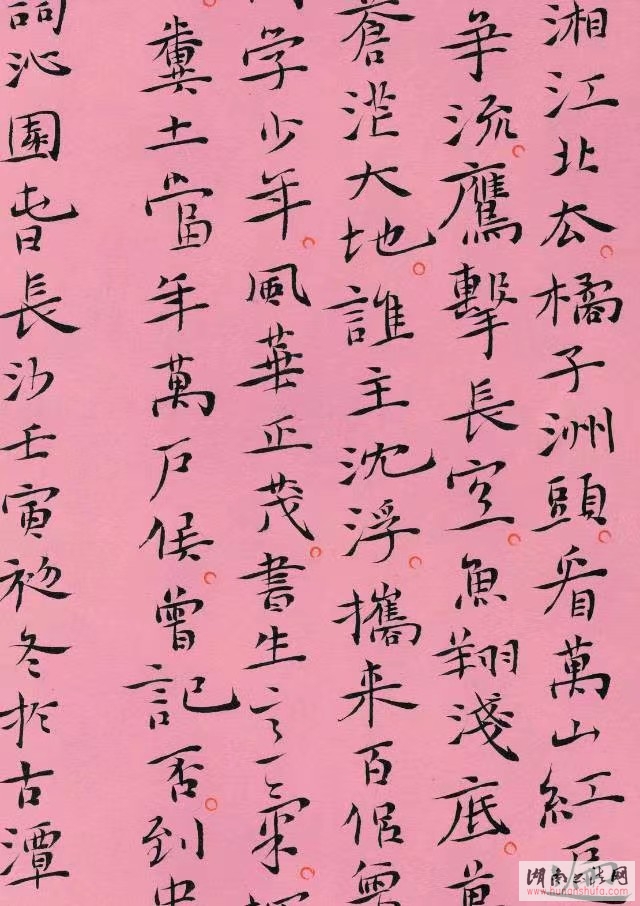 湘江北去橘子洲頭看萬山紅
争流鷹擊長空魚翔淺底萬
蒼茫大地誰主沈浮攜来百侣曾
同学少年風華正茂書生意氣
糞土當年萬户侯曾記否到中
詞沁園春長沙壬寅初冬於古潭
湖南书法网
www.hunanshufa.com